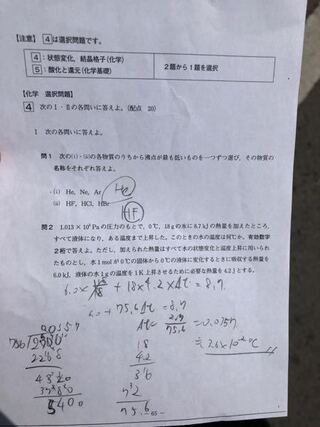 【注意】 4 は選択問題です。
4 :状態変化,結晶格子(化学)
5 :酸化と還元(化学基礎)
2題から1題を選択
【化学 選択問題】
4 次のⅠ・Ⅱの各問いに答えよ。(配点 20)
Ⅰ 次の各問いに答えよ。
問1 次の(i)・(ii)の各物質のうちから沸点が最も低いものを一つずつ選び,その物質の
名称をそれぞれ答えよ。
(i) He, Ne, Ar He
(ii) HF, HCl, HBr
HF
問2 1.013×10⁵Paの圧力のもとで,0℃,18gの氷に8.7kJの熱量を加えたところ,
すべて液体になり,ある温度まで上昇した。このときの水の温度は何℃か。有効数字
2桁で答えよ。ただし,加えられた熱量はすべて水の状態変化と温度上昇に用いられ
たものとし,水1molが0℃の固体から0℃の液体に変化するときに吸収する熱量を
6.0kJ,液体の水1gの温度を1K上昇させるために必要な熱量を4.2Jとする。
+ 18×4.2×Δt = 8.7
6.0 + 75.6Δt = 8.7
Δt = 2.7/75.6 = 0.0357
18
4.2
36
72
75.6
5400
65